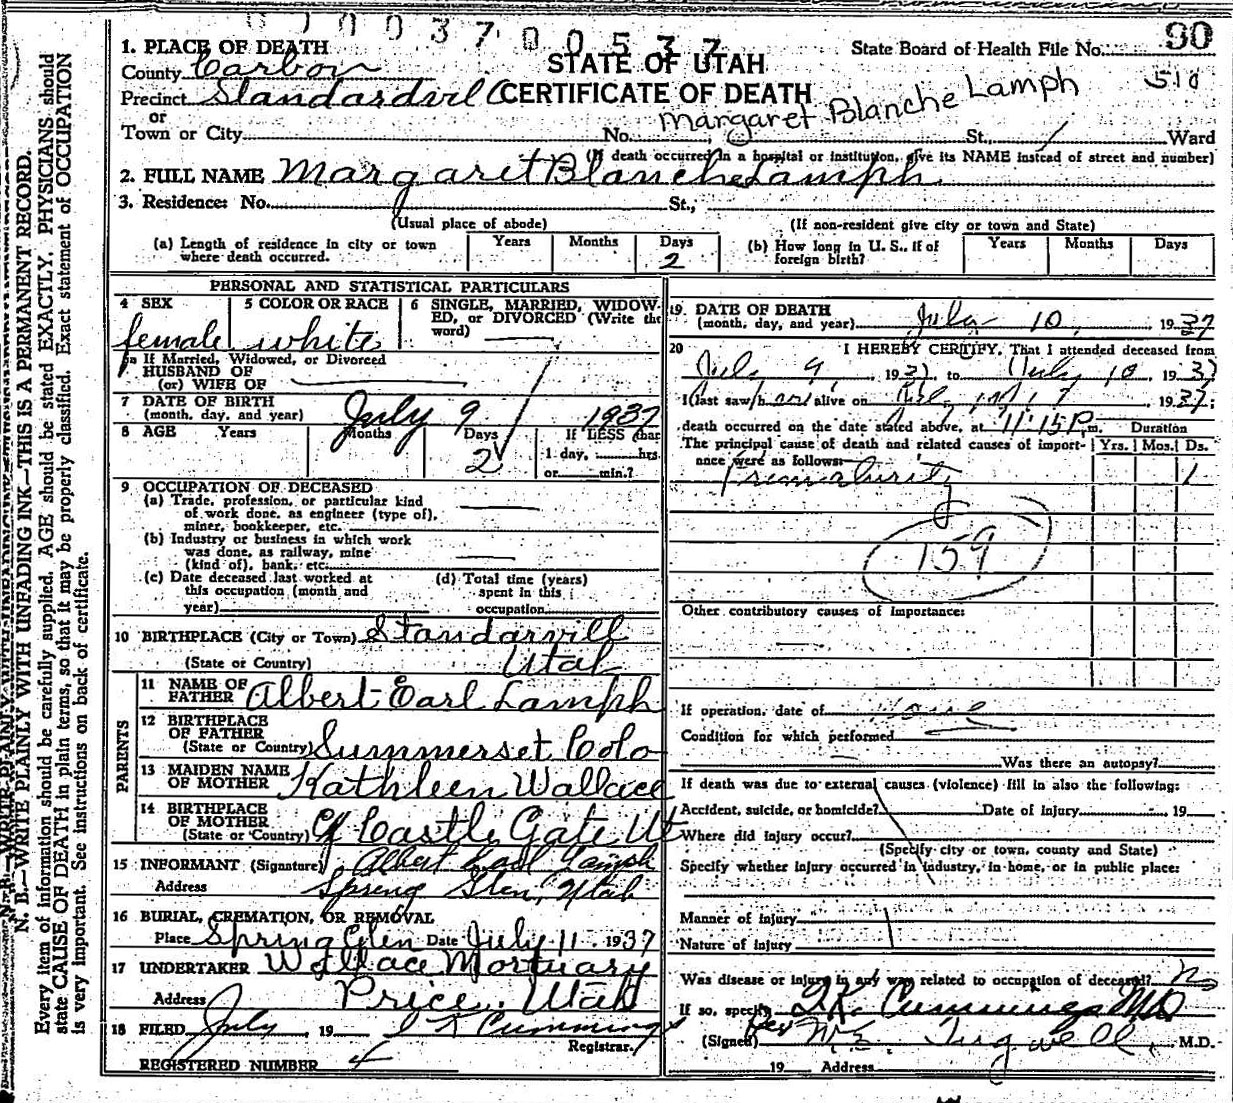 0 1 0 0 3 7 0 0 5 3 7
90
1. PLACE OF DEATH
State Board of Health File No.
County Carbon
STATE OF UTAH
510
Precinct Standardvil
CERTIFICATE OF DEATH
Margaret Blanche Lamph
or
Town or City No. St., Ward
(If death occurred in a hospital or institution, give its NAME instead of street and number)
2. FULL NAME Margaret Blanche Lamph
3. Residence: No. St.,
(Usual place of abode) (If non-resident give city or town and State)
(a) Length of residence in city or town where death occurred. Years Months Days 2 (b) How long in U. S., if of foreign birth? Years Months Days
PERSONAL AND STATISTICAL PARTICULARS
4 SEX 5 COLOR OR RACE 6 SINGLE, MARRIED, WIDOW-
ED, or DIVORCED (Write the
word)
female white
If Married, Widowed, or Divorced
HUSBAND OF
(or) WIFE OF
7 DATE OF BIRTH
(month, day, and year) July 9 1937
8 AGE Years Months Days If LESS than
2 1 day, hrs.
or min.?
9 OCCUPATION OF DECEASED
(a) Trade, profession, or particular kind
of work done, as engineer (type of),
miner, bookkeeper, etc.
(b) Industry or business in which work
was done, as railway, mine
(kind of), bank, etc.
(c) Date deceased last worked at
this occupation (month and
year)
(d) Total time (years)
spent in this
occupation
10 BIRTHPLACE (City or Town) Standarvill
(State or Country) Utah
PARENTS
11 NAME OF
FATHER Albert Earl Lamph
12 BIRTHPLACE
OF FATHER
(State or Country) Summerset Colo
13 MAIDEN NAME
OF MOTHER Kathleen Wallace
14 BIRTHPLACE
OF MOTHER
(State or Country) Castle Gate Ut
15 INFORMANT (Signature) Albert Earl Lamph
Address Spring Glen, Utah
16 BURIAL, CREMATION, OR REMOVAL
Place Spring Glen Date July 11 1937
17 UNDERTAKER Wallace Mortuary
Address Price, Utah
18 FILED July, 19 Cummings
Registrar.
REGISTERED NUMBER 4
19 DATE OF DEATH
(month, day, and year) July 10, 1937
20 I HEREBY CERTIFY, That I attended deceased from
July 9, 1937, to July 10, 1937
I last saw her alive on 1937;
death occurred on the date stated above, at 11:15 P. m. Duration
The principal cause of death and related causes of import-
ance were as follows: Yrs. Mos. Ds.
Prematurity 1
159
Other contributory causes of importance:
If operation, date of None
Condition for which performed
Was there an autopsy?
If death was due to external causes (violence) fill in also the following:
Accident, suicide, or homicide? Date of injury 19
Where did injury occur?
(Specify city or town, county and State)
Specify whether injury occurred in industry, in home, or in public place:
Manner of injury
Nature of injury
Was disease or injury in any way related to occupation of deceased? no
If so, specify Cummings MD
(Signed) per Tugwell, M.D.
19 Address
N. B.—WRITE PLAINLY WITH UNFADING INK—THIS IS A PERMANENT RECORD.
Every item of information should be carefully supplied. AGE should be stated EXACTLY. PHYSICIANS should
state CAUSE OF DEATH in plain terms, so that it may be properly classified. Exact statement of OCCUPATION
is very important. See instructions on back of certificate.